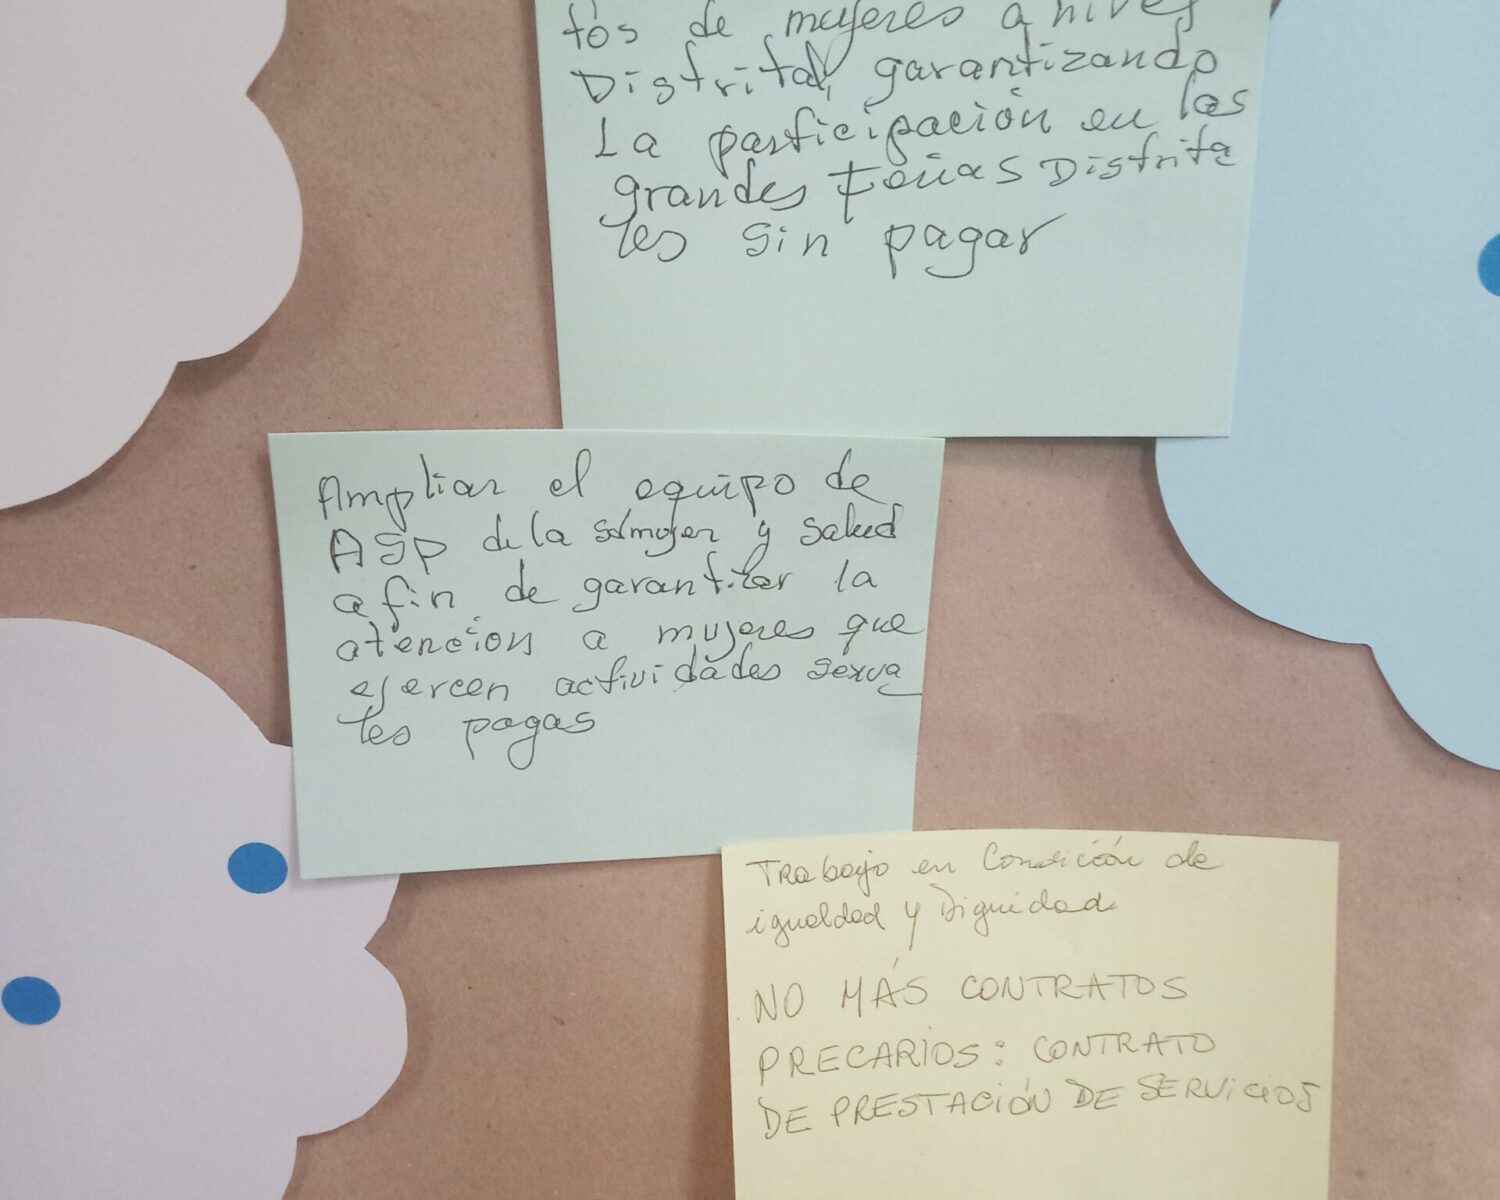 tos de mujeres a nivel
Distrital, garantizando
La participación en las
grandes Ferias Distrita
les sin pagar
Ampliar el equipo de
ASP de la sdmujer y salud
a fin de garantizar la
atención a mujeres que
ejercen actividades sexua
les pagas
Trabajo en Condición de
igualdad y Dignidad
NO MÁS CONTRATOS
PRECARIOS: CONTRATO
DE PRESTACIÓN DE SERVICIOS